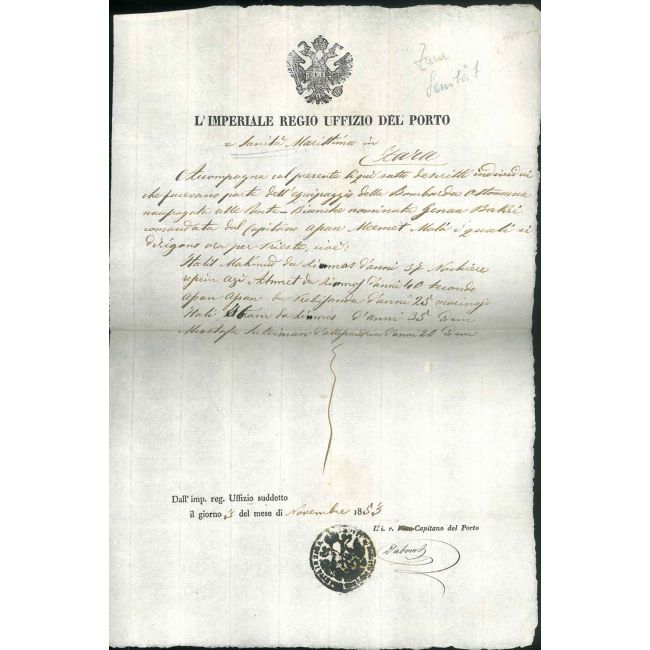 Zara
Sanität
L'IMPERIALE REGIO UFFIZIO DEL PORTO
e Sanità Marittima in
Zara
Accompagna col presente li qui sotto descritti individui
che facevano parte dell'equipaggio della Bombarda Ottomana
naufragata alle Ponte-Bianche nominata Genan Bakri
comandata dal Capitano Apan Meemet Molà i quali si
dirigono ora per Trieste, cioè:
Halil Makmud da d'anni 37 Nochiere
Azi Ahmet da d'anni 40 secondo
Apan Apan da d'anni 25 marinajo
Hali da d'anni 35 Idem
Mustafa Suleiman d'Alessandria d'anni 20 Idem
Dall' imp. reg. Uffizio suddetto
il giorno 3 del mese di Novembre 1853
L'i. r. Vice-Capitano del Porto